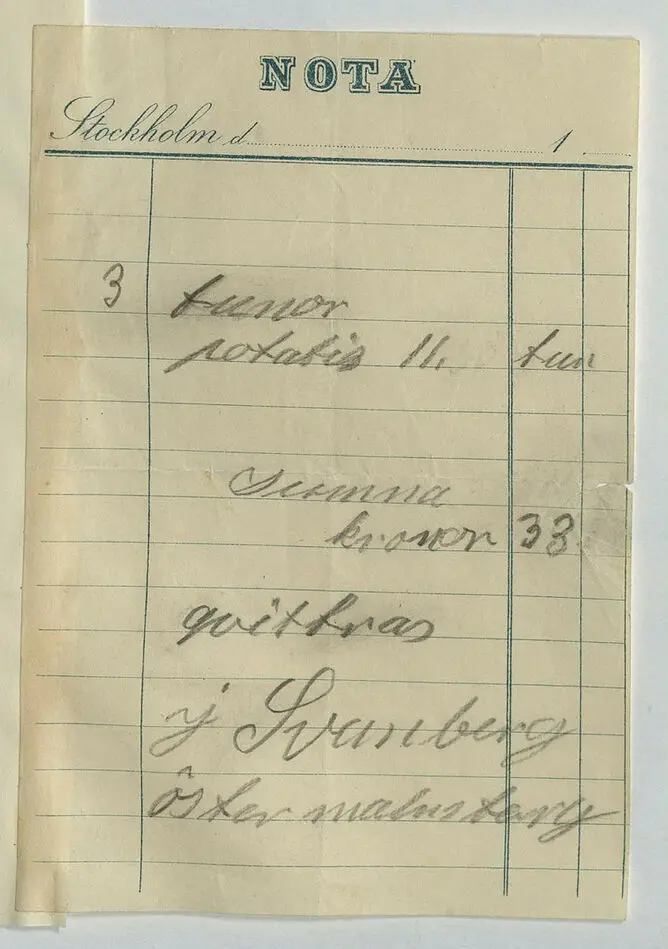 NOTA
Stockholm d. 1
3 tunor
potatis 11. tun
summa
kronor 33.
qvittras
j Svanberg
östermalmstorg